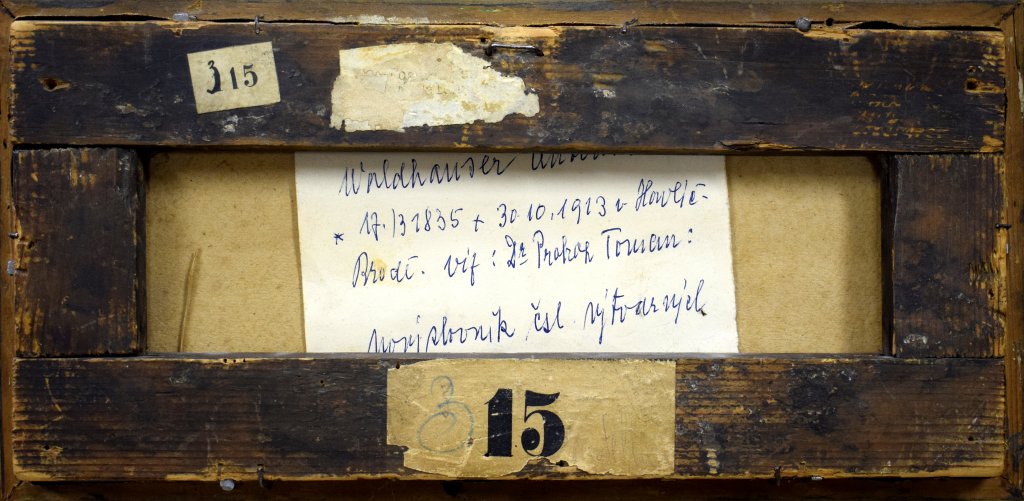 315
Waldhauser
* 17./3 1835 + 30 10. 1913 v Havlíč-
Brodě. viz: Dr Prokop Toman:
nový slovník čsl. výtvarných
3
15